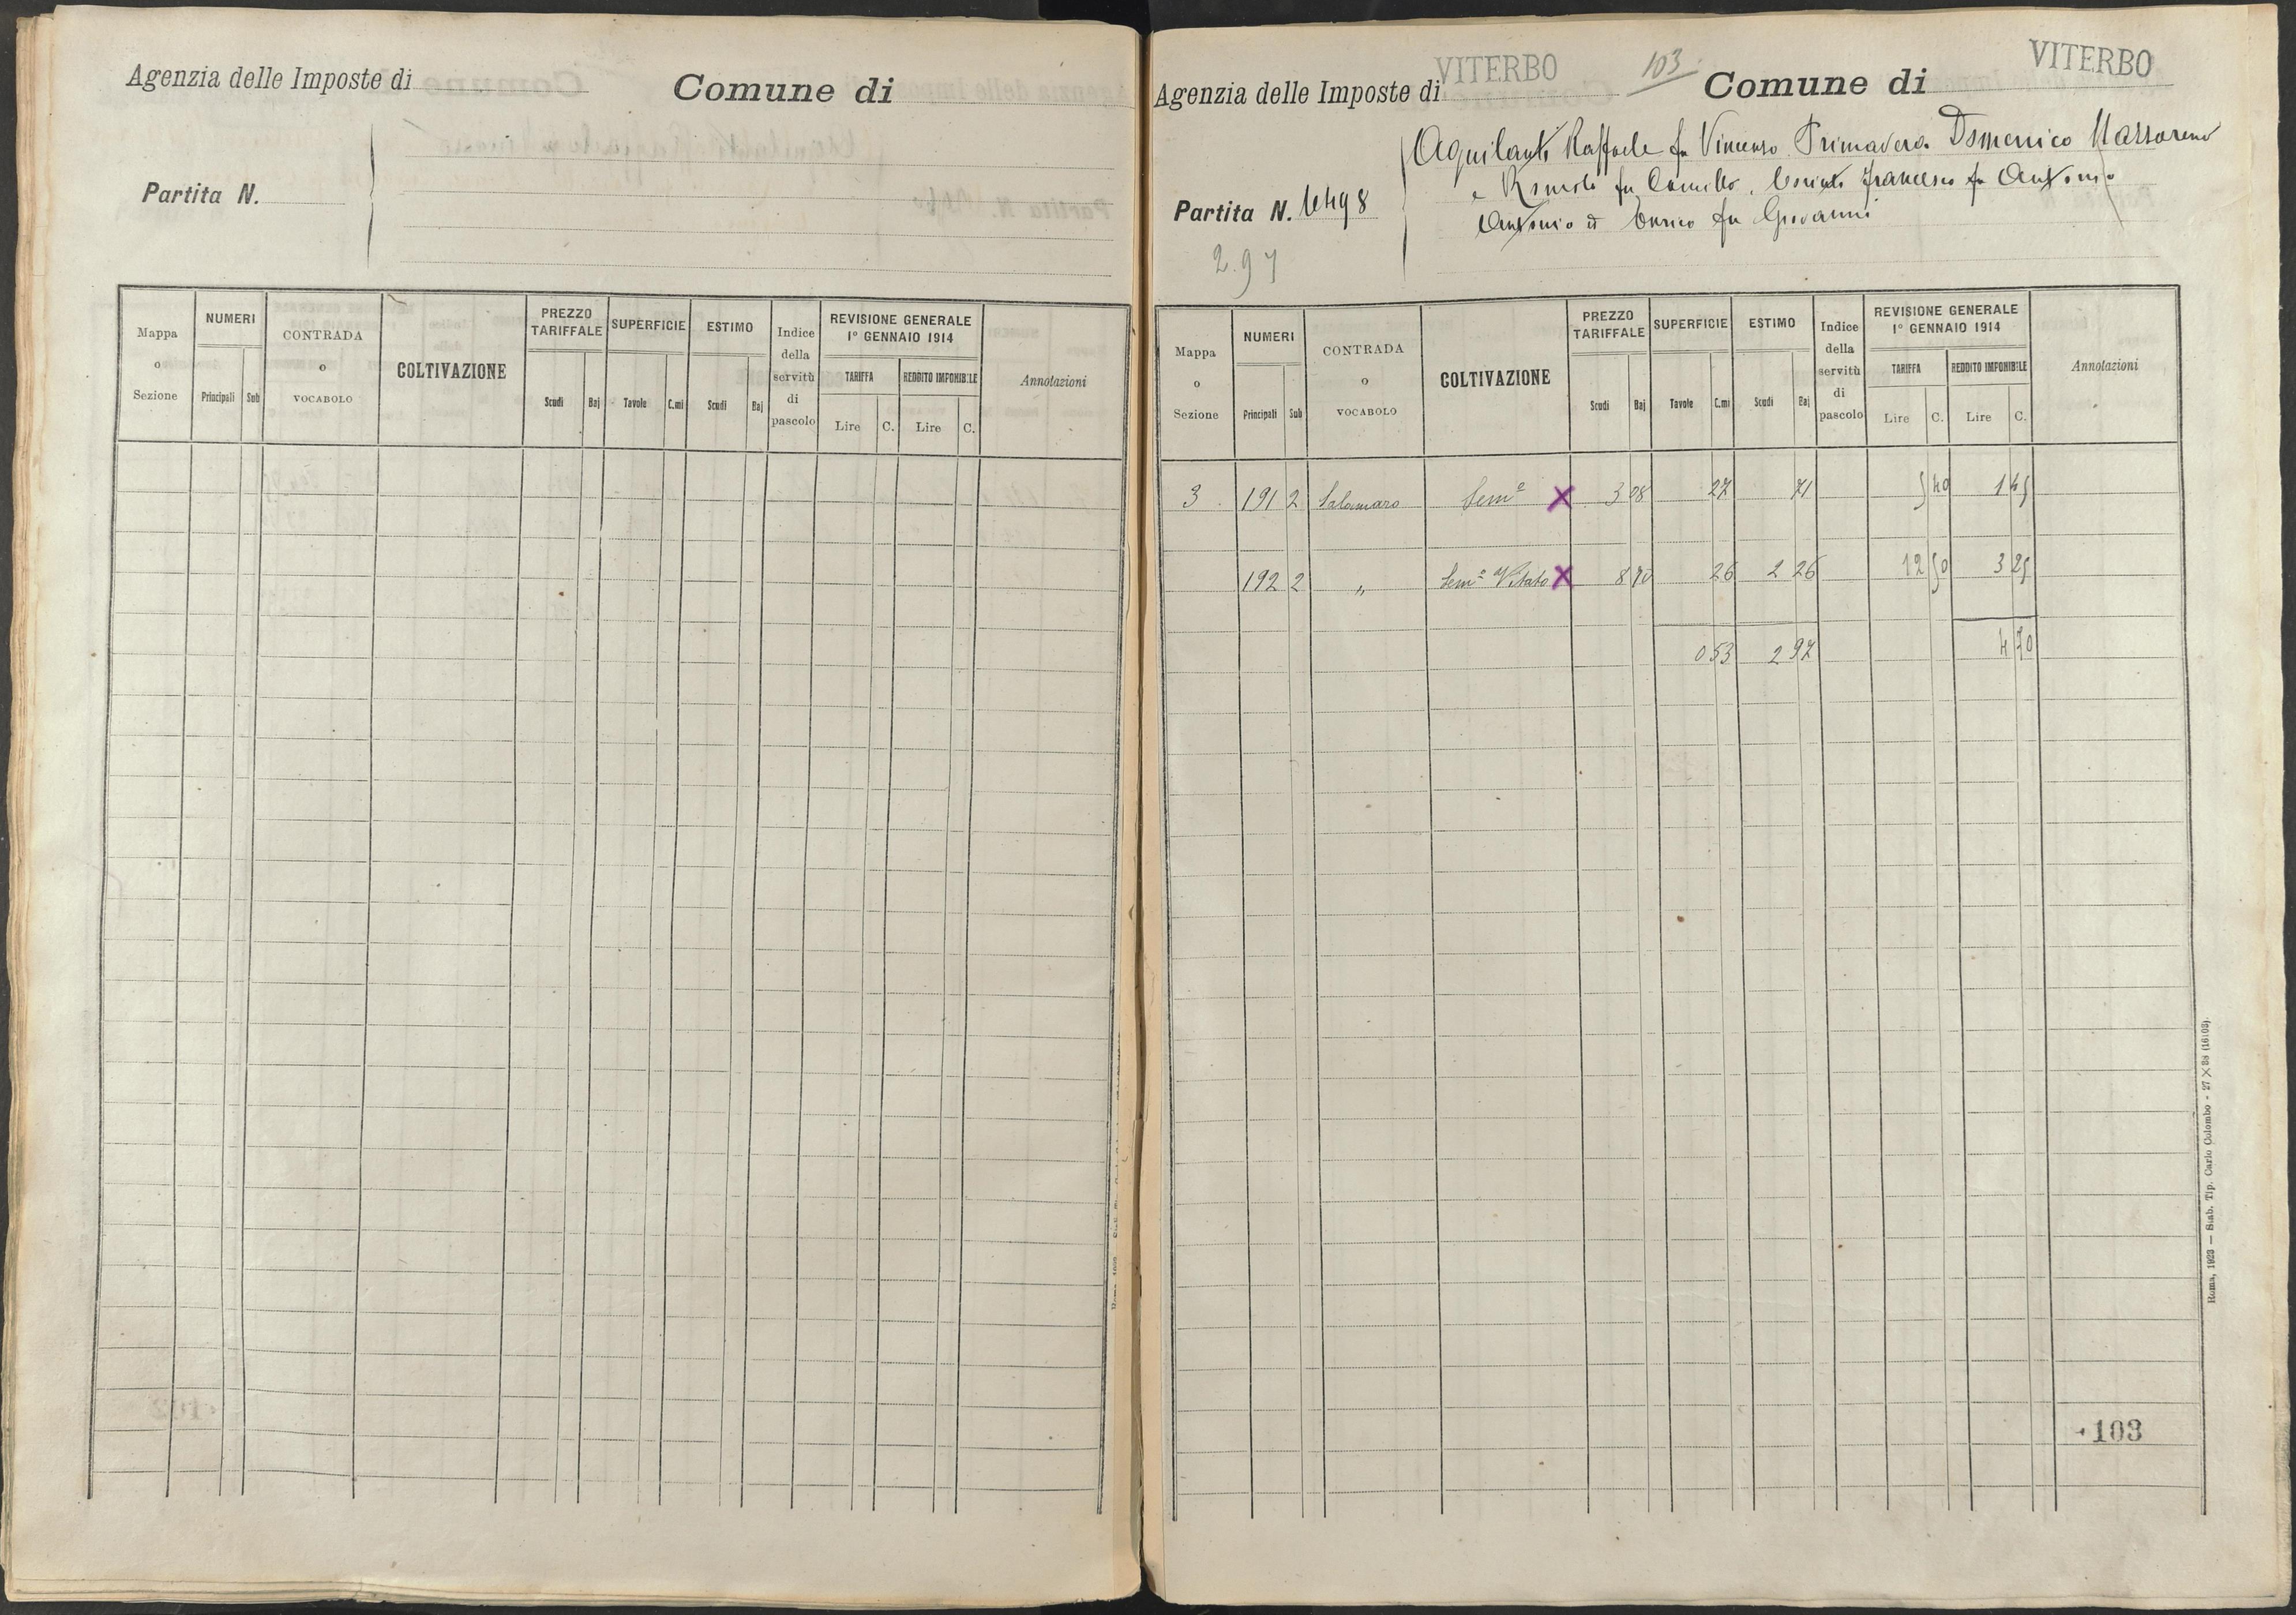 Agenzia delle Imposte di
Comune di
Partita N.
Mappa o Sezione
NUMERI
Principali Sub
CONTRADA o VOCABOLO
COLTIVAZIONE
PREZZO TARIFFALE
Scudi Baj
SUPERFICIE
Tavole C.mi
ESTIMO
Scudi Baj
Indice della servitù di pascolo
REVISIONE GENERALE
1° GENNAIO 1914
TARIFFA REDDITO IMPONIBILE
Lire C. Lire C.
Annotazioni
Agenzia delle Imposte di VITERBO
103
Comune di VITERBO
Partita N. 4498
Aquilanti Raffaele fu Vincenzo Primavera Domenico Nazzareno
e Romolo fu Camillo, Francesco fu Antonio
Antonio ed Enrico fu Giovanni
2.97
Mappa o Sezione
NUMERI
Principali Sub
CONTRADA o VOCABOLO
COLTIVAZIONE
PREZZO TARIFFALE
Scudi Baj
SUPERFICIE
Tavole C.mi
ESTIMO
Scudi Baj
Indice della servitù di pascolo
REVISIONE GENERALE
1° GENNAIO 1914
TARIFFA REDDITO IMPONIBILE
Lire C. Lire C.
Annotazioni
3 191 2 Salamaro Sem° X 3 08 27 71 5 40 1 45
192 2 " Sem° Vitato X 8 70 26 2 26 12 50 3 25
0 53 2 97 4 70
103
Roma, 1923 — Stab. Tip. Carlo Colombo - 27 X 38 (16103).